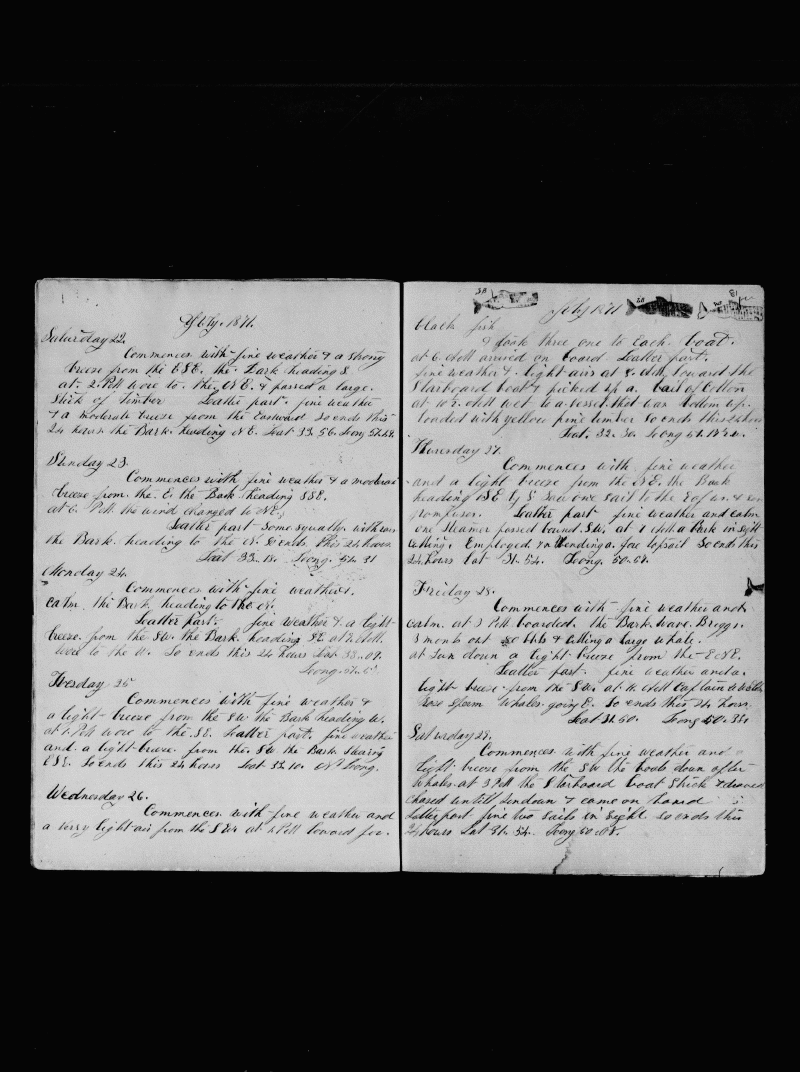 July. 1871.
Saturday 22.
Commences with fine weather & a strong
breeze from the ESE. the Bark heading S
at 2 PM wore to the NE. & passed a large
stick of timber Leatter part. fine weather
& a moderate breeze from the Eastward So ends this
24 hours the Bark. heading NE. Leat 33. 56. Loong
Sunday 23.
Commences with fine weather & a moderate
breeze from. the. E. the Bark heading SSE.
at 6. PM the wind changed to NE.
Leatter part Some squally. with rain
the Bark. heading to the N. So ends this 24 hours.
Leat 33. 13. Loong. 51. 31
Monday 24.
Commences with fine weather.
calm. the Bark heading to the N.
Leatter part. fine weather & a light
breeze. from the SW. the Bark heading SE
wore to the W. So ends this 24 hours Leat 33. 09.
Loong. 51.
Tuesday 25
Commences with fine weather &
a light breeze from the SW the Bark heading W.
at 1. PM wore to the SE. Leatter part. fine weather
and a light breeze. from the. SW the Bark
ESE. So ends this 24 hours Leat 32. 10. No Loong.
Wednesday 26.
Commences with fine weather and
a verry light air from the SW at PM lowerd for.
July 1871
black fish
& took three one to each boat.
at 6. oclk arrived on board Leatter part.
fine weather & light airs at 8. oclk toward the
Starboard boat & picked up a. bail of Cotton
at 10 oclk wet to a vessel that was bottom up.
loaded with yellow pine timber So ends this 24 hours
Leat. 32. 30. Loong 51.
Thuresday 27.
Commences with fine weather
and a light breeze from the NE. the Bark
heading SE by S saw one sail to the E of us. &
Leatter part fine weather and calm
one Steamer passed bound. SW. at 7 oclk a Bark in sight
cutting. Employed in mending a. fore topsail So ends this
24 hours Lat 31. 54. Loong. 50. 51.
Friday 28.
Commences with fine weather and
calm. at PM boarded. the Bark Wave. Briggs.
3 months out bbls & cutting a large whale.
at Sun down a light breeze from the ESE.
Leatter part. fine weather and a.
light breeze from the SW. at 11. oclk Captain
Sperm Whales. going E. So ends this 24 hours.
Leat 31. 50. Loong 50. 34.
Saturday 29.
Commences with fine weather and a
light breeze from the SW the boats down after
whales at 3 PM the Starboard boat Struck &
chased untill Sundown & came on board
Latter part fine two sails in Sight. So ends this
24 hours Lat 31. 54. Loong 50